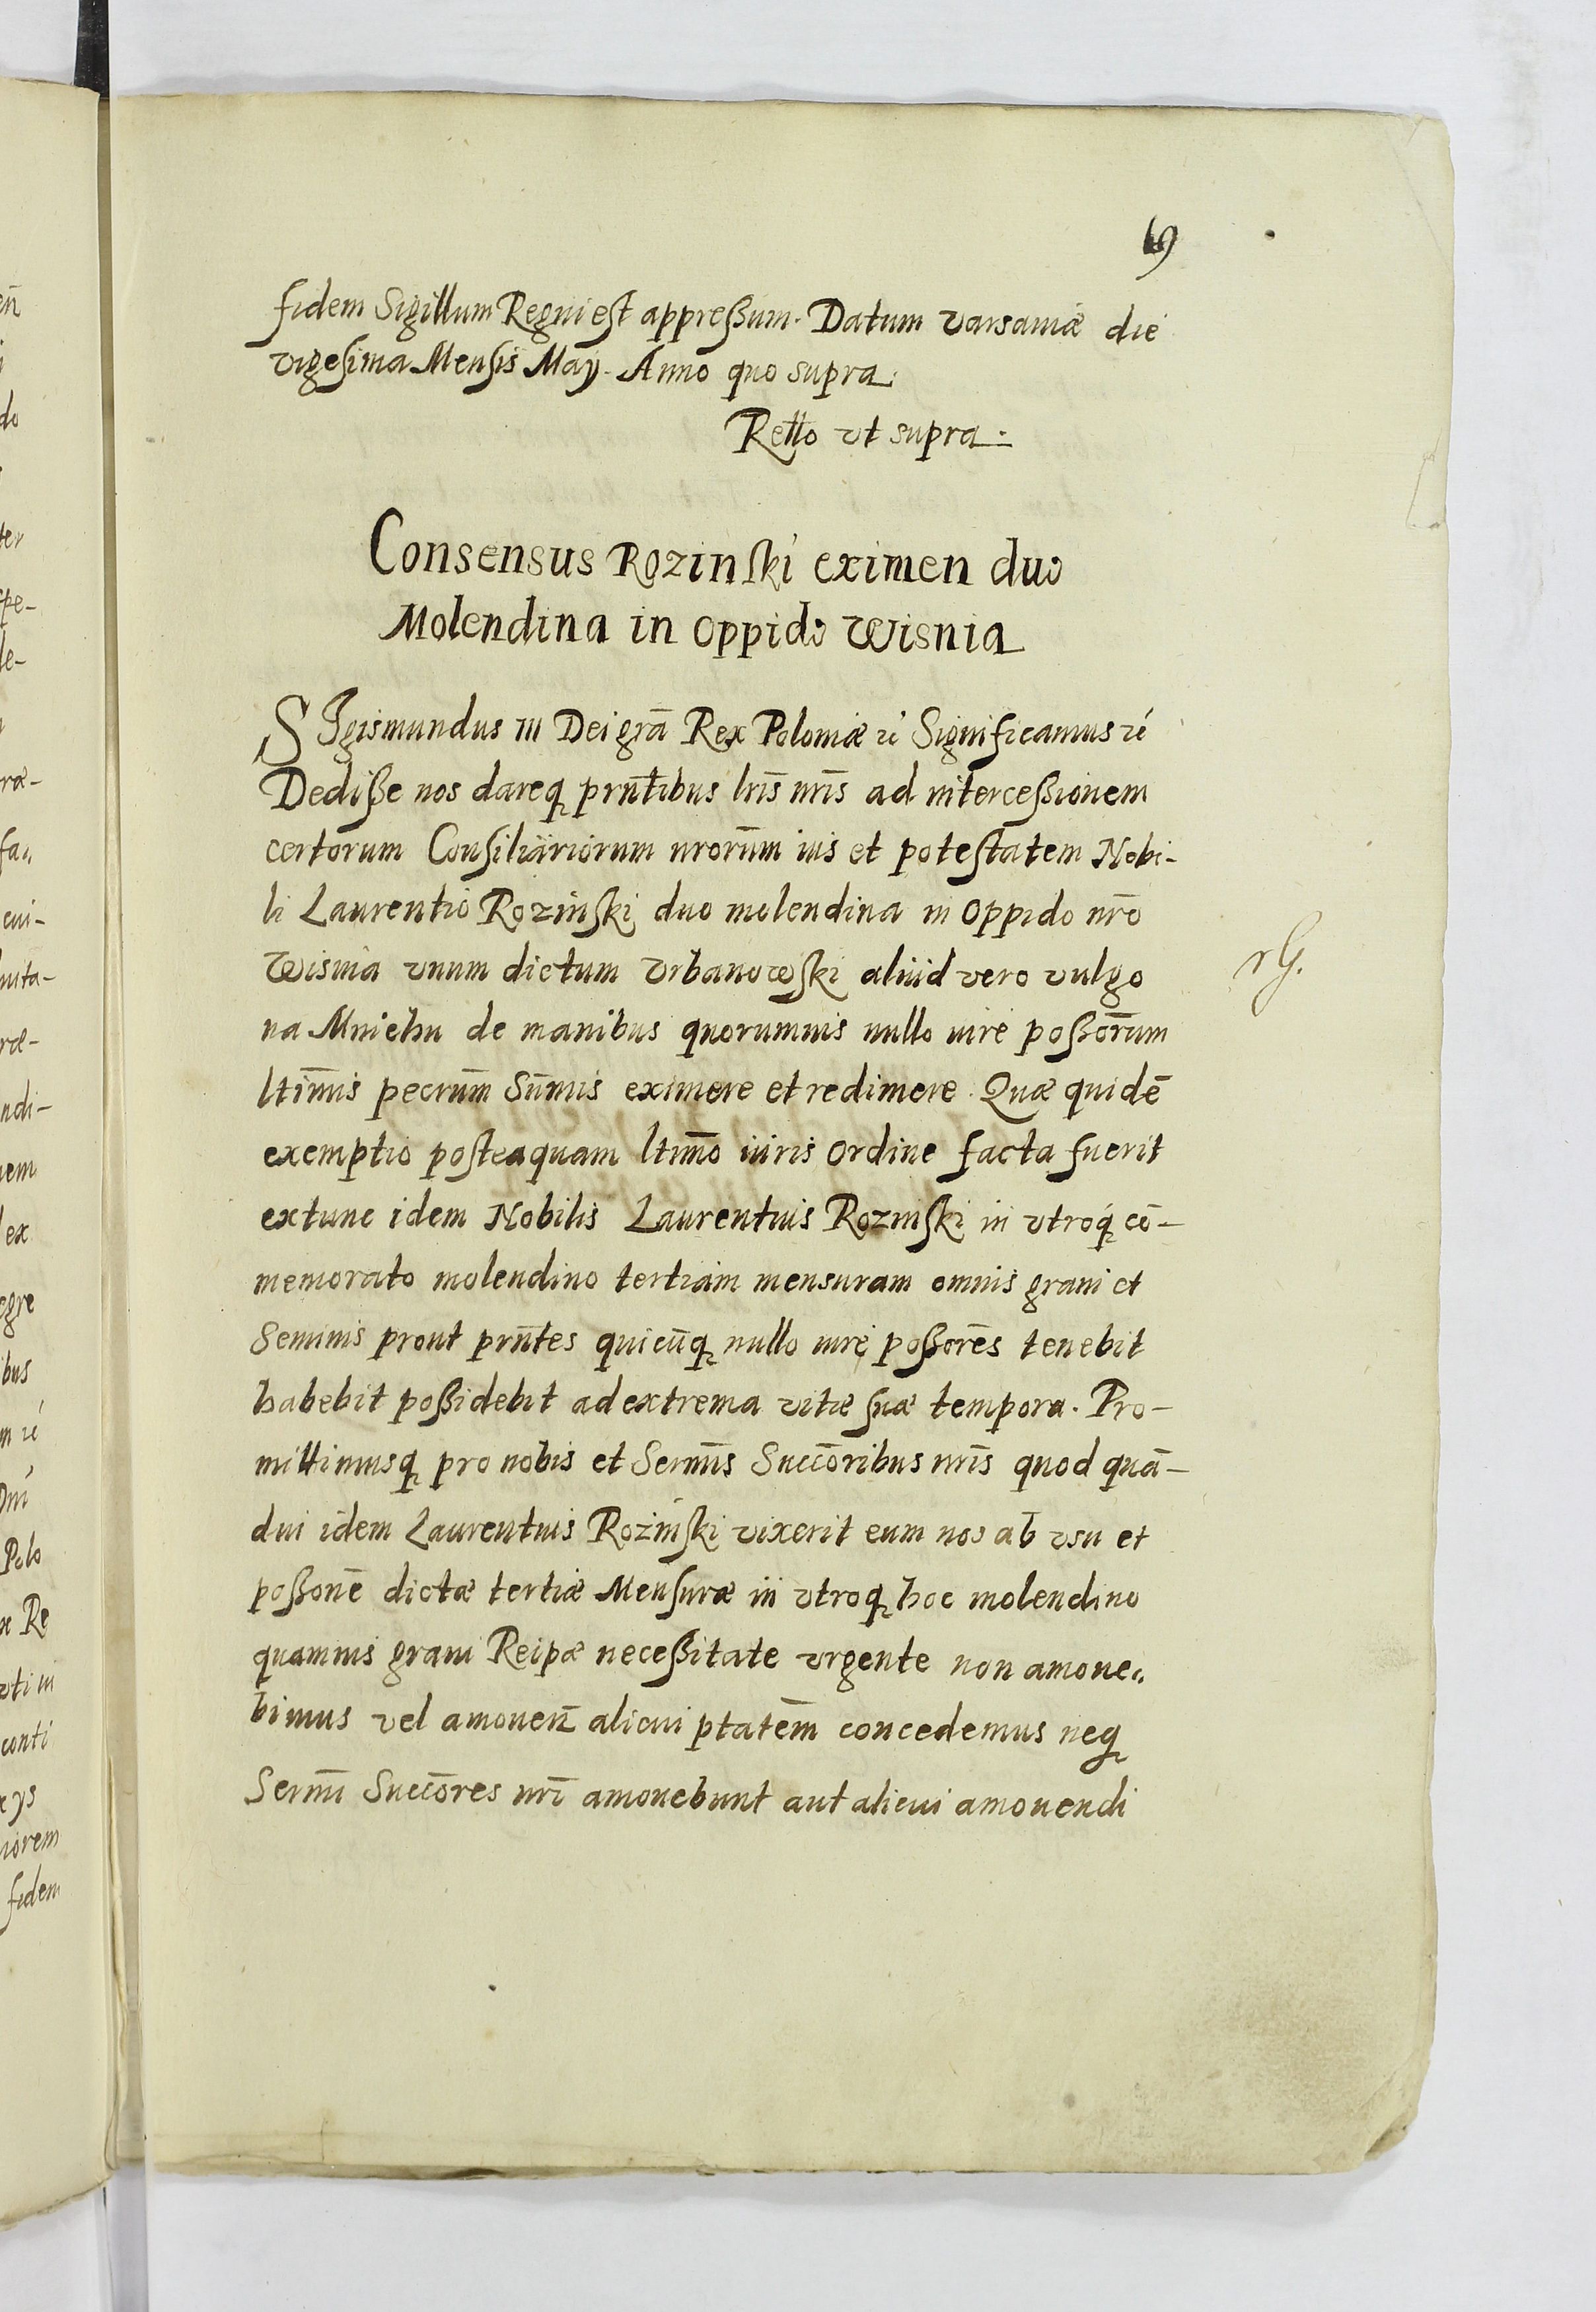 69
fidem Sigillum Regni est appreßum. Datum Varsaviæ die
vigesima Mensis Maÿ. Anno quo supra.
Retto vt supra.
Consensus Rozinski eximen duo
Molendina in oppido Wisnia
SIgismundus III Dei grã Rex Poloniæ &c Significamus &c
Dediße nos dareq prñtibus lrĩs nrĩs ad interceßionem
certorum Consiliariorum nrorũm ius et potestatem Nobi-
li Laurentio Rozinski duo molendina in oppido nrõ
Wisnia vnum dictum Vrbanowski aliud vero vulgo
na Mnichu de manibus quorumuis nullo iure poßorũm
ltimĩs pecrũm Sũmis eximere et redimere. Quæ quidẽ
exemptio posteaquam ltimõ iuris ordine facta fuerit
extunc idem Nobilis Laurentius Rozinski in vtroq cõ-
memorato molendino tertiam mensuram omnis grani et
Seminis prout prñtes quicũq nullo iure poßorẽs tenebit
habebit poßidebit ad extrema vitæ suæ tempora. Pro-
mittimusq pro nobis et Sermĩs Succõribus nrĩs quod quã-
diu idem Laurentius Roziński vixerit eum nos ab vsu et
poßonẽ dictæ tertiæ Mensuræ in vtroq hoc molendino
quamuis graui Reipæ neceßitate vrgente non amoue-
bimus vel amoueñ alicui ptatẽm concedemus neq
Sermĩ Succõres nrĩ amouebunt aut alicui amouendi